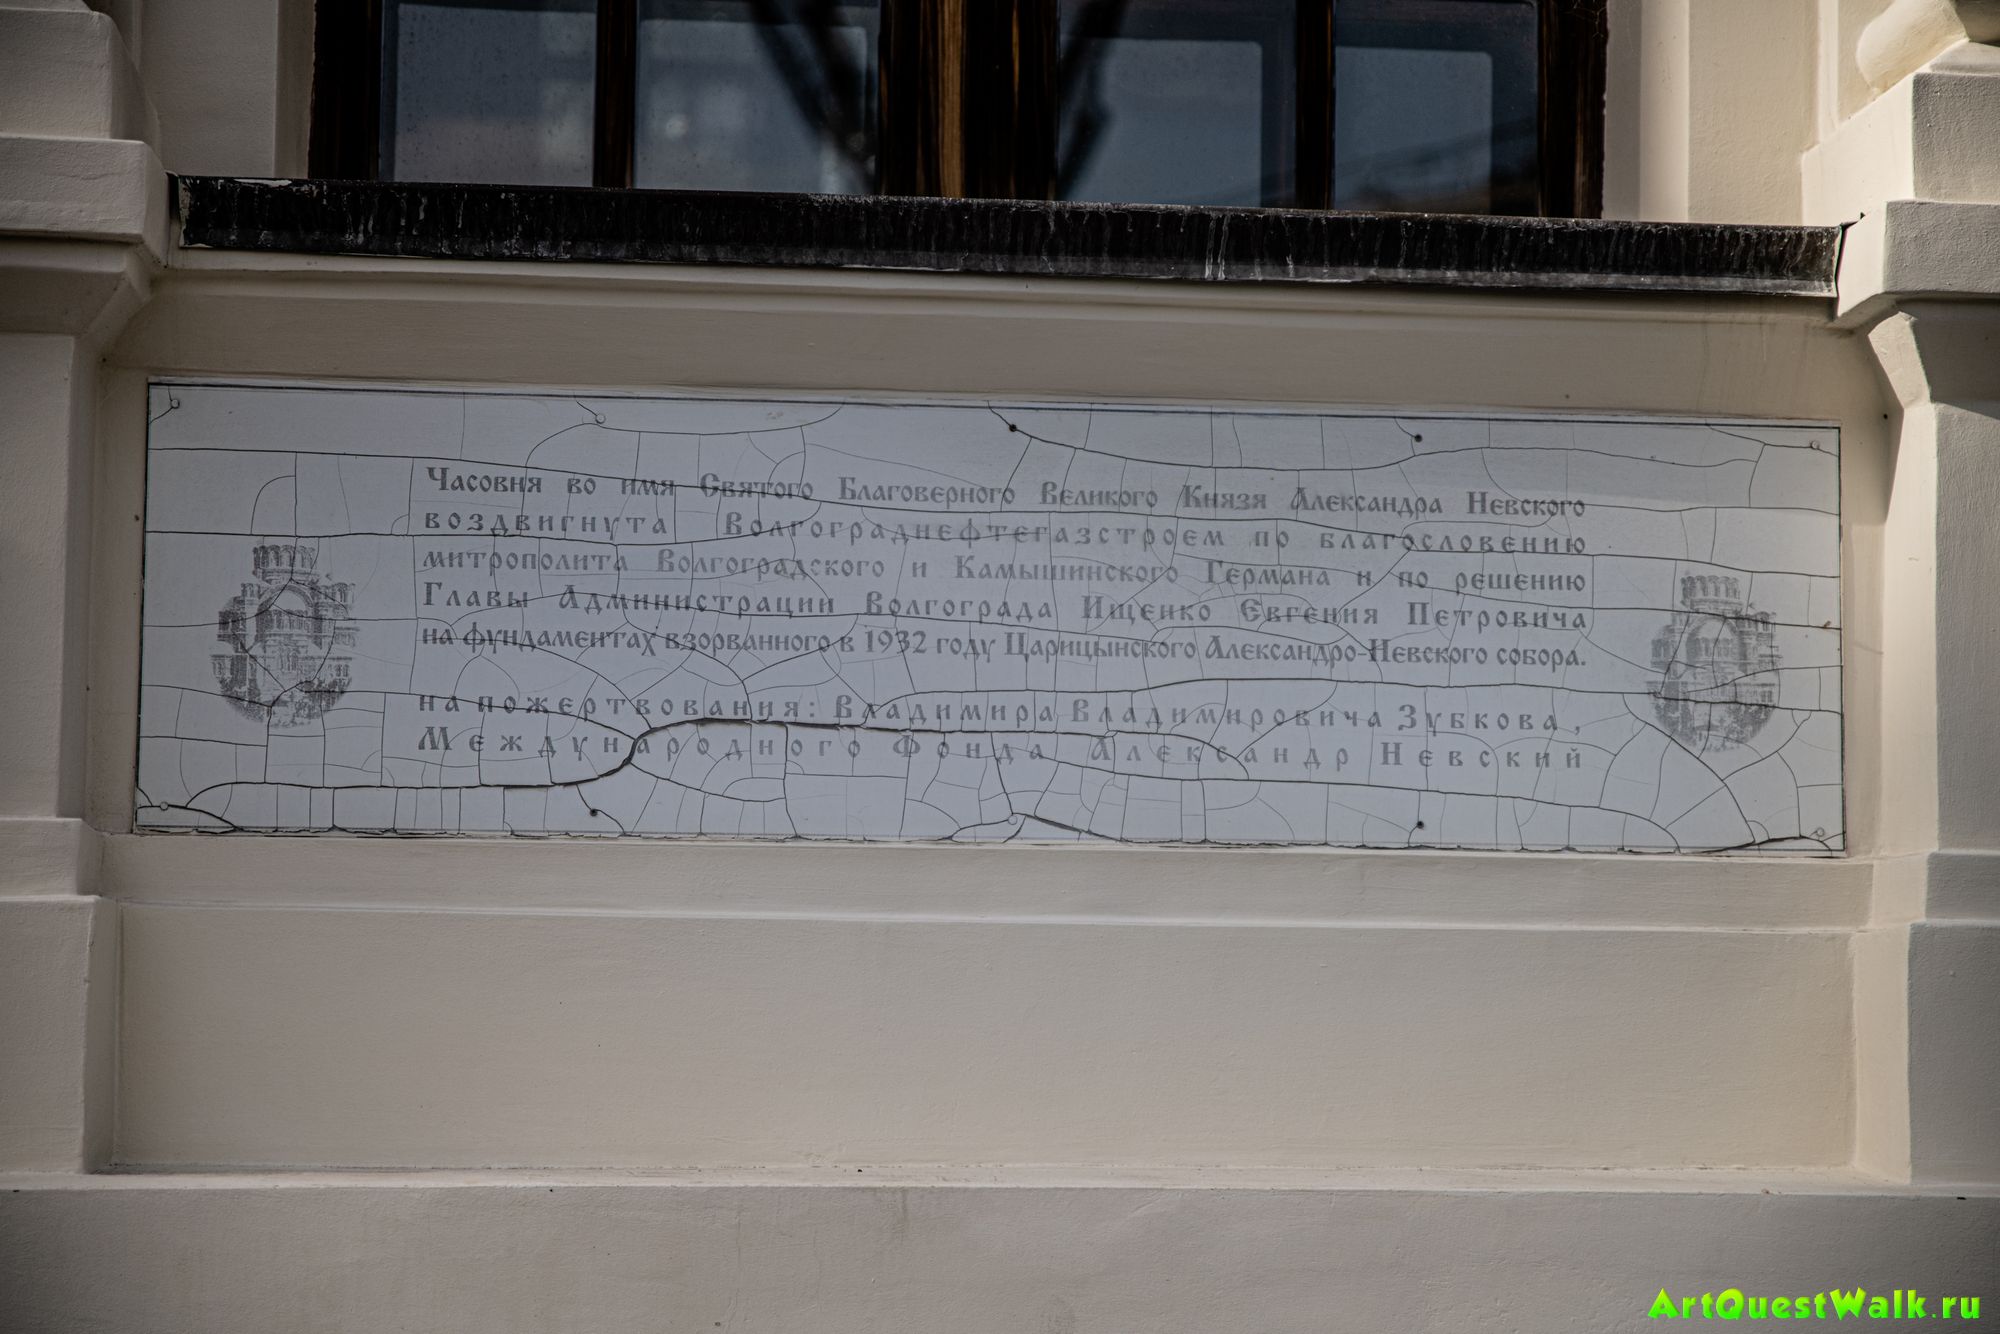 Часовня во имя Святого Благоверного Великого Князя Александра Невского
воздвигнута Волгограднефтегазстроем по благословению
митрополита Волгоградского и Камышинского Германа и по решению
Главы Администрации Волгограда Ищенко Евгения Петровича
на фундаментах взорванного в 1932 году Царицынского Александро-Невского собора.
на пожертвования: Владимира Владимировича Зубкова,
Международного Фонда Александр Невский
ArtQuestWalk.ru